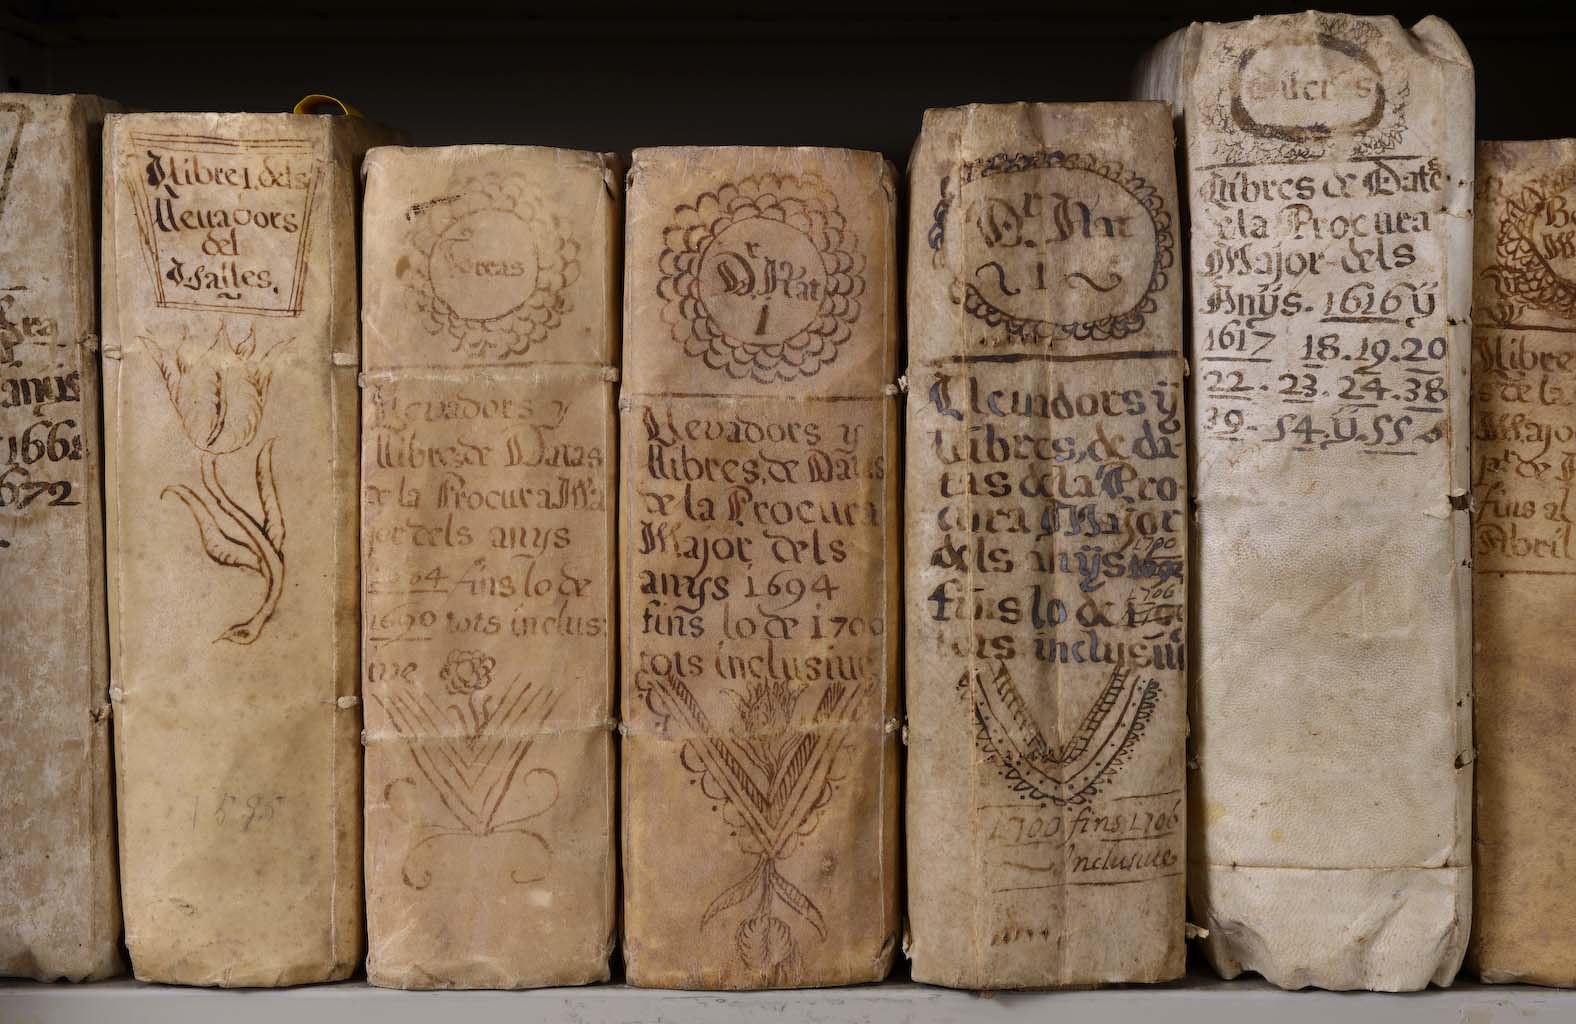 anỹs
1661
1672
Llibre 1. dels
Llevadors
del
Isailes.
1595
Llevadors y
llibres, de Datas
de la Procura Ma
jor dels anys
fins lo de
1690 tots inclus:
ive
Dr. Nat
1
Llevadors y
llibres, de Datas
de la Procura
Major dels
anys 1694
fins lo de 1700
tots inclusiue
Dr. Nat
1
Llevadors ÿ
Llibres, de da-
tas de la Pro
cura Major
1700
dels anÿs 1694
1706
fins lo de
tots inclusiu
1700 fins 1706
Inclusiue.
Llibres de Date
de la Procura
Major dels
Anÿs. 1616 ÿ
1617 18. 19. 20
22. 23. 24. 38
39. 54. ÿ. 55.
Llibre
s de la
Majo
de
fins al
Abril